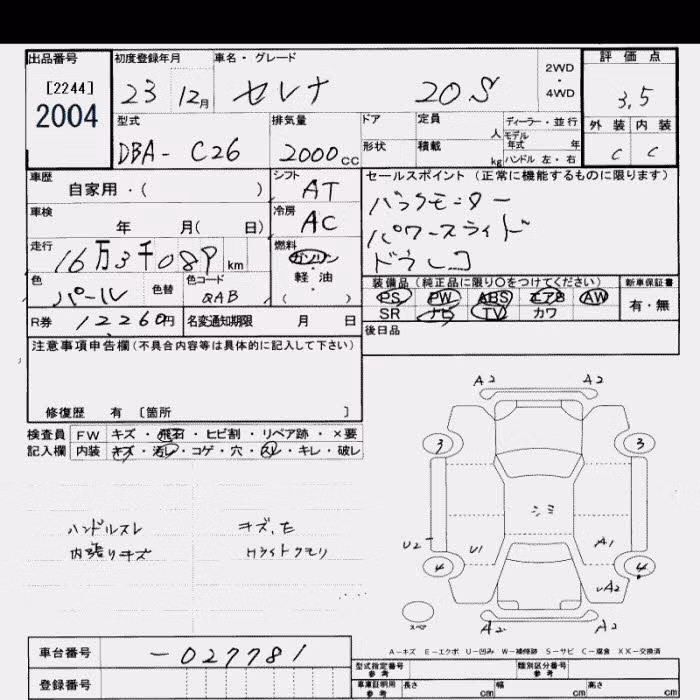 出品番号
[2244]
2004
初度登録年月
23 12月
車名・グレード
セレナ 20S
2WD
・
4WD
評価点
3.5
外装 内装
C C
型式
DBA- C26
排気量
2000cc
ドア
形状
定員
人
積載
kg
ディーラー・並行
モデル
年式 年
ハンドル 左・右
車歴
自家用・( )
シフト
AT
車検
年 月( 日)
冷房
AC
走行
16万3千089km
燃料
ガソリン
軽・油
( )
色
パール
色替
色コード
QAB
R券 12260円
名変通知期限 月 日
セールスポイント (正常に機能するものに限ります)
バックモニター
パワースライド
ドラレコ
装備品(純正品に限り○をつけてください)
PS PW ABS エアB AW
SR ナビ TV カワ
新車保証書
有・無
後日品
注意事項申告欄(不具合内容等は具体的に記入して下さい)
修復歴 有 [箇所 ]
検査員
記入欄
FW キズ・飛石・ヒビ割・リペア跡・×要
内装 キズ・汚レ・コゲ・穴・スレ・キレ・破レ
ハンドルスレ
内張りキズ
キズ、モ
Hライトクモリ
A2 A2
3 3
シミ
U2 U1 A1
4 4
A2
スペ
A2 A2
A-キズ E-エクボ U-凹み W-補修跡 S-サビ C-腐食 XX-交換済
車台番号
-027781
登録番号
型式指定番号
参考
類別区分番号
参考
車庫証明用
参考
長さ cm 幅 cm 高さ cm